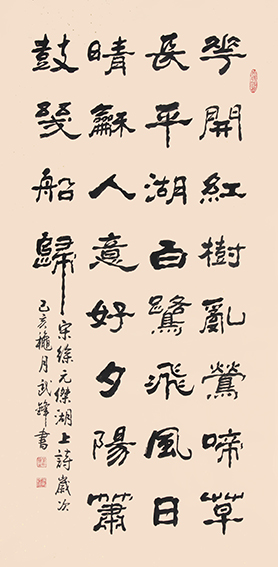 花開紅樹亂鶯啼草
長平湖白鷺飛風日
晴龢人意好夕陽簫
鼓幾船歸
宋徐元傑湖上詩歲次
己亥穐月武鋒書